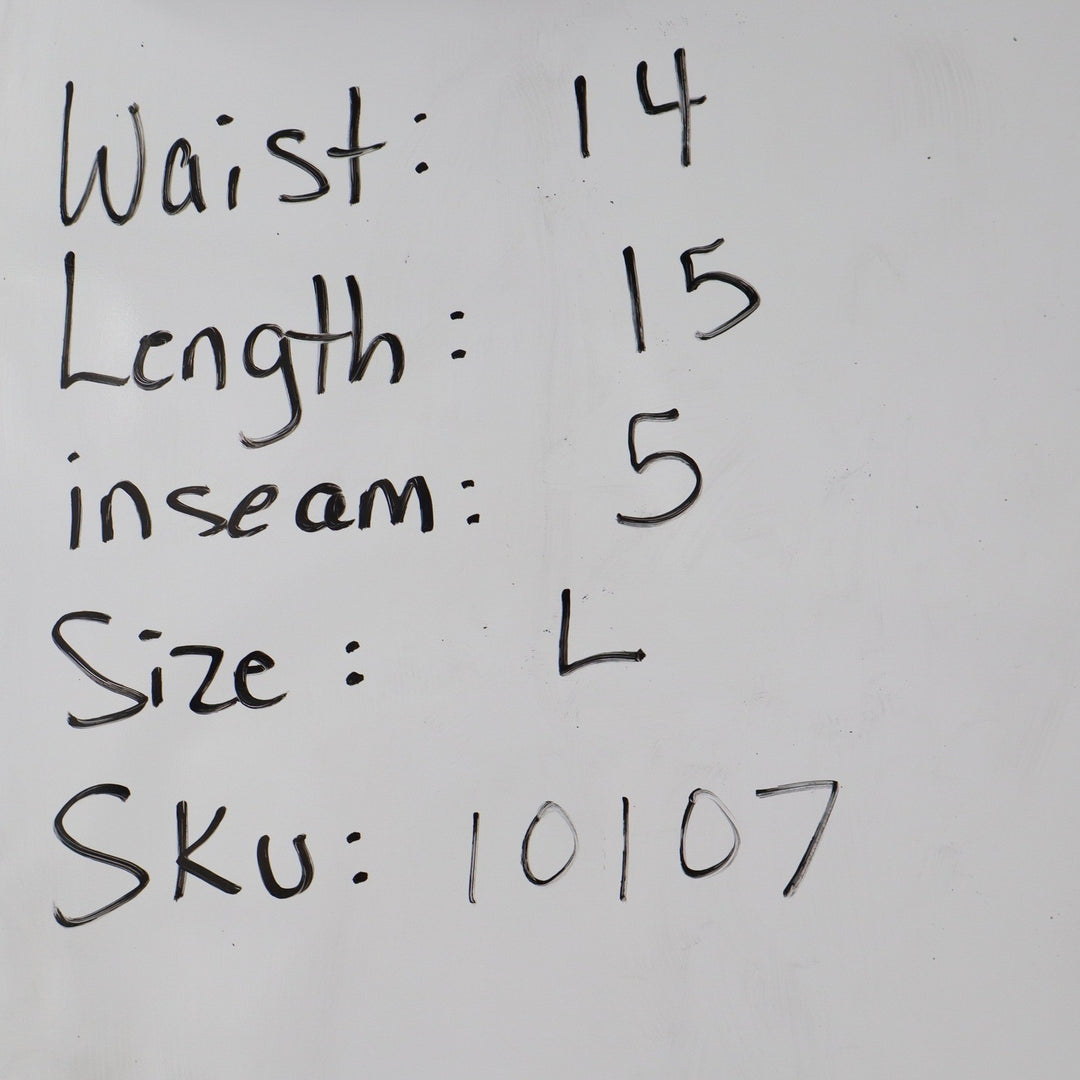 Waist: 14
Length: 15
inseam: 5
Size: L
SKU: 10107